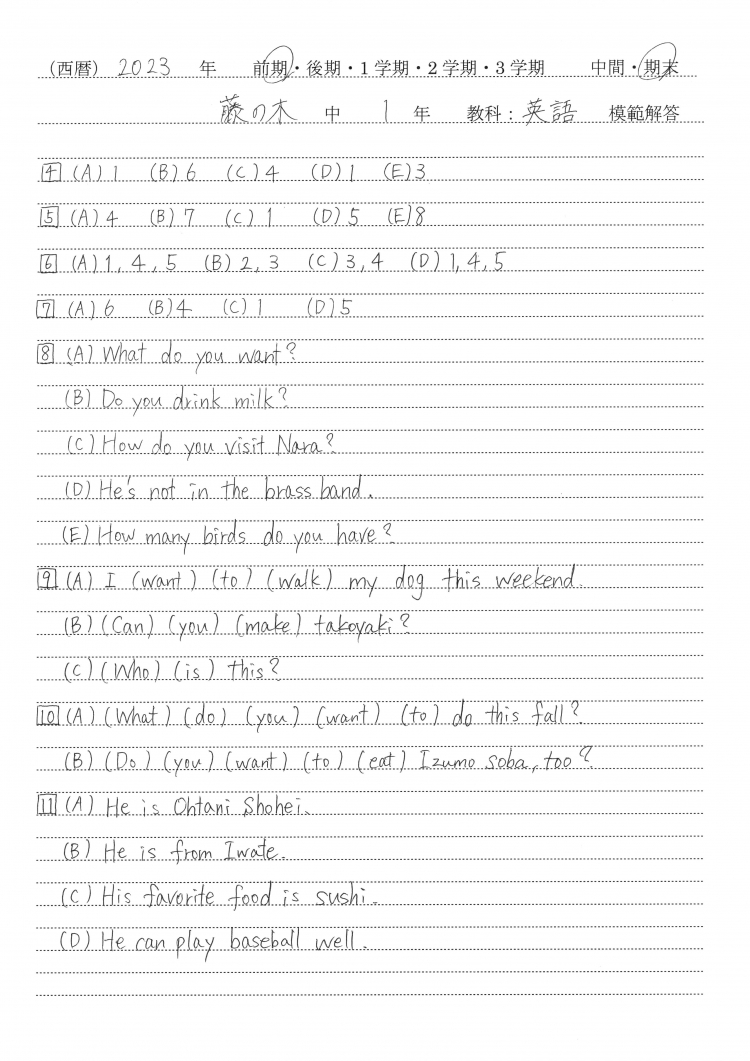 （西暦） 2023 年 前期・後期・1学期・2学期・3学期 中間・期末
藤の木 中 1 年 教科：英語 模範解答
4 (A) 1 (B) 6 (C) 4 (D) 1 (E) 3
5 (A) 4 (B) 7 (C) 1 (D) 5 (E) 8
6 (A) 1, 4, 5 (B) 2, 3 (C) 3, 4 (D) 1, 4, 5
7 (A) 6 (B) 4 (C) 1 (D) 5
8 (A) What do you want?
(B) Do you drink milk?
(C) How do you visit Nara?
(D) He's not in the brass band.
(E) How many birds do you have?
9 (A) I (want) (to) (walk) my dog this weekend.
(B) (Can) (you) (make) takoyaki?
(C) (Who) (is) this?
10 (A) (What) (do) (you) (want) (to) do this fall?
(B) (Do) (you) (want) (to) (eat) Izumo soba, too?
11 (A) He is Ohtani Shohei.
(B) He is from Iwate.
(C) His favorite food is sushi.
(D) He can play baseball well.